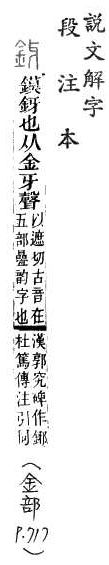 說文解字
段注本
釾 鏌釾也从金牙聲
以遮切古音在五部疊韵字也
漢郭究碑作鎁杜篤傳注引同
(金部 P.717)